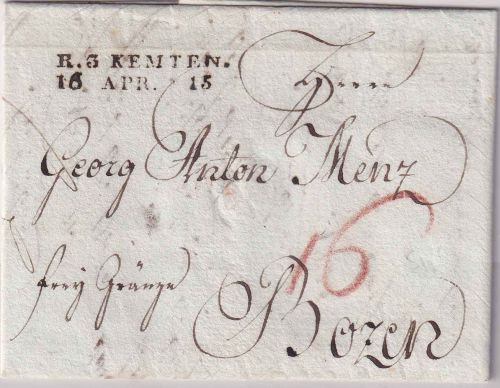 R. 3 KEMTEN.
16 APR. 15
Herrn
Georg Anton Menz
16
frey Gränze
Bozen